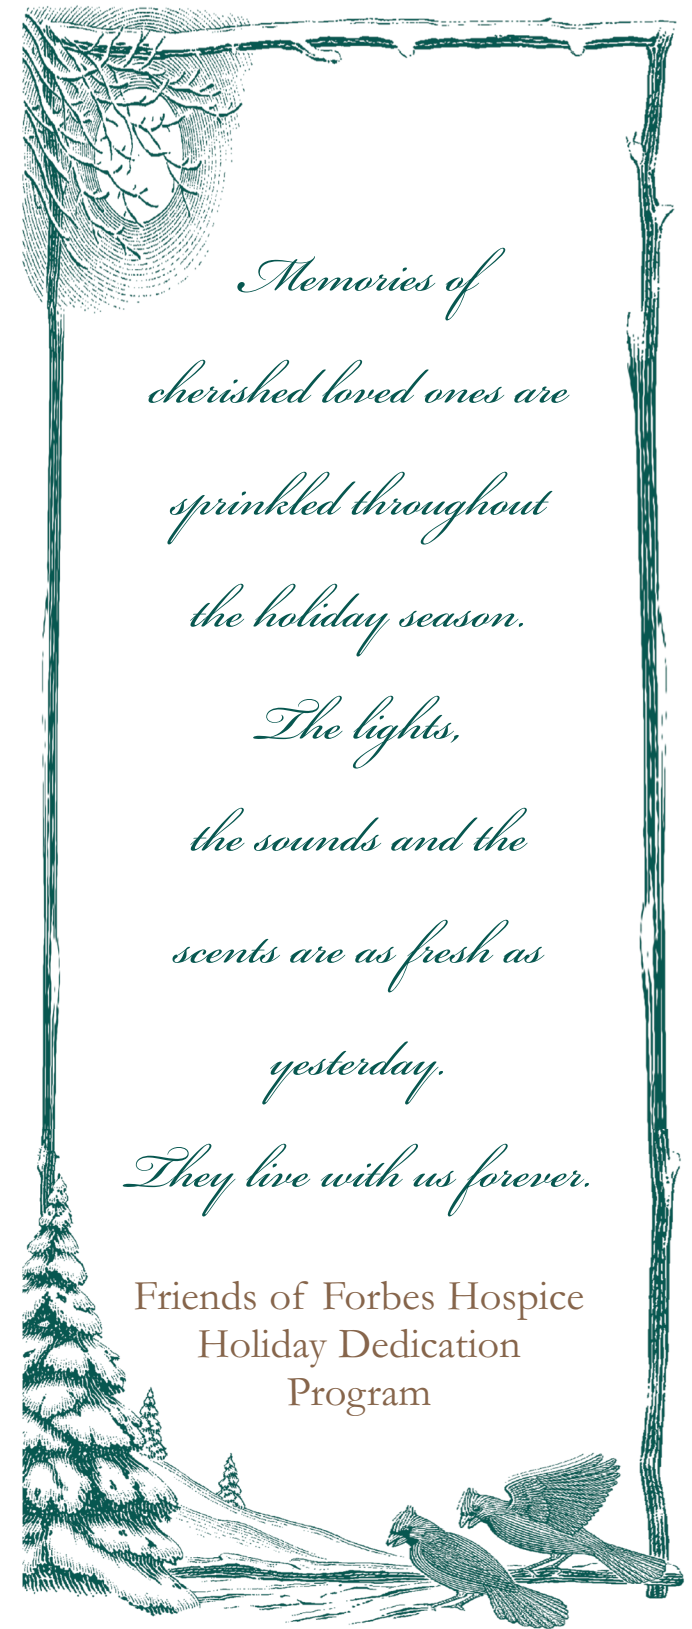 Memories of
cherished loved ones are
sprinkled throughout
the holiday season.
The lights,
the sounds and the
scents are as fresh as
yesterday.
They live with us forever.
Friends of Forbes Hospice
Holiday Dedication
Program